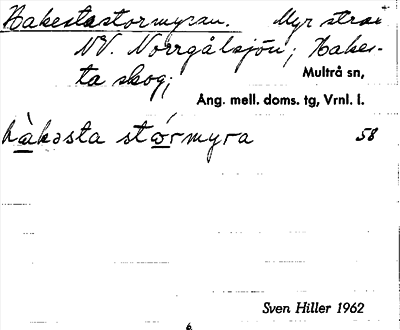 Hakestastormyran. Myr strax
NV. Norrgålsjön; Hakes-
ta skog;
Multrå sn,
Ång. mell. doms. tg, Vrnl. l.
hàkəsta stórmyra 58
Sven Hiller 1962
6.